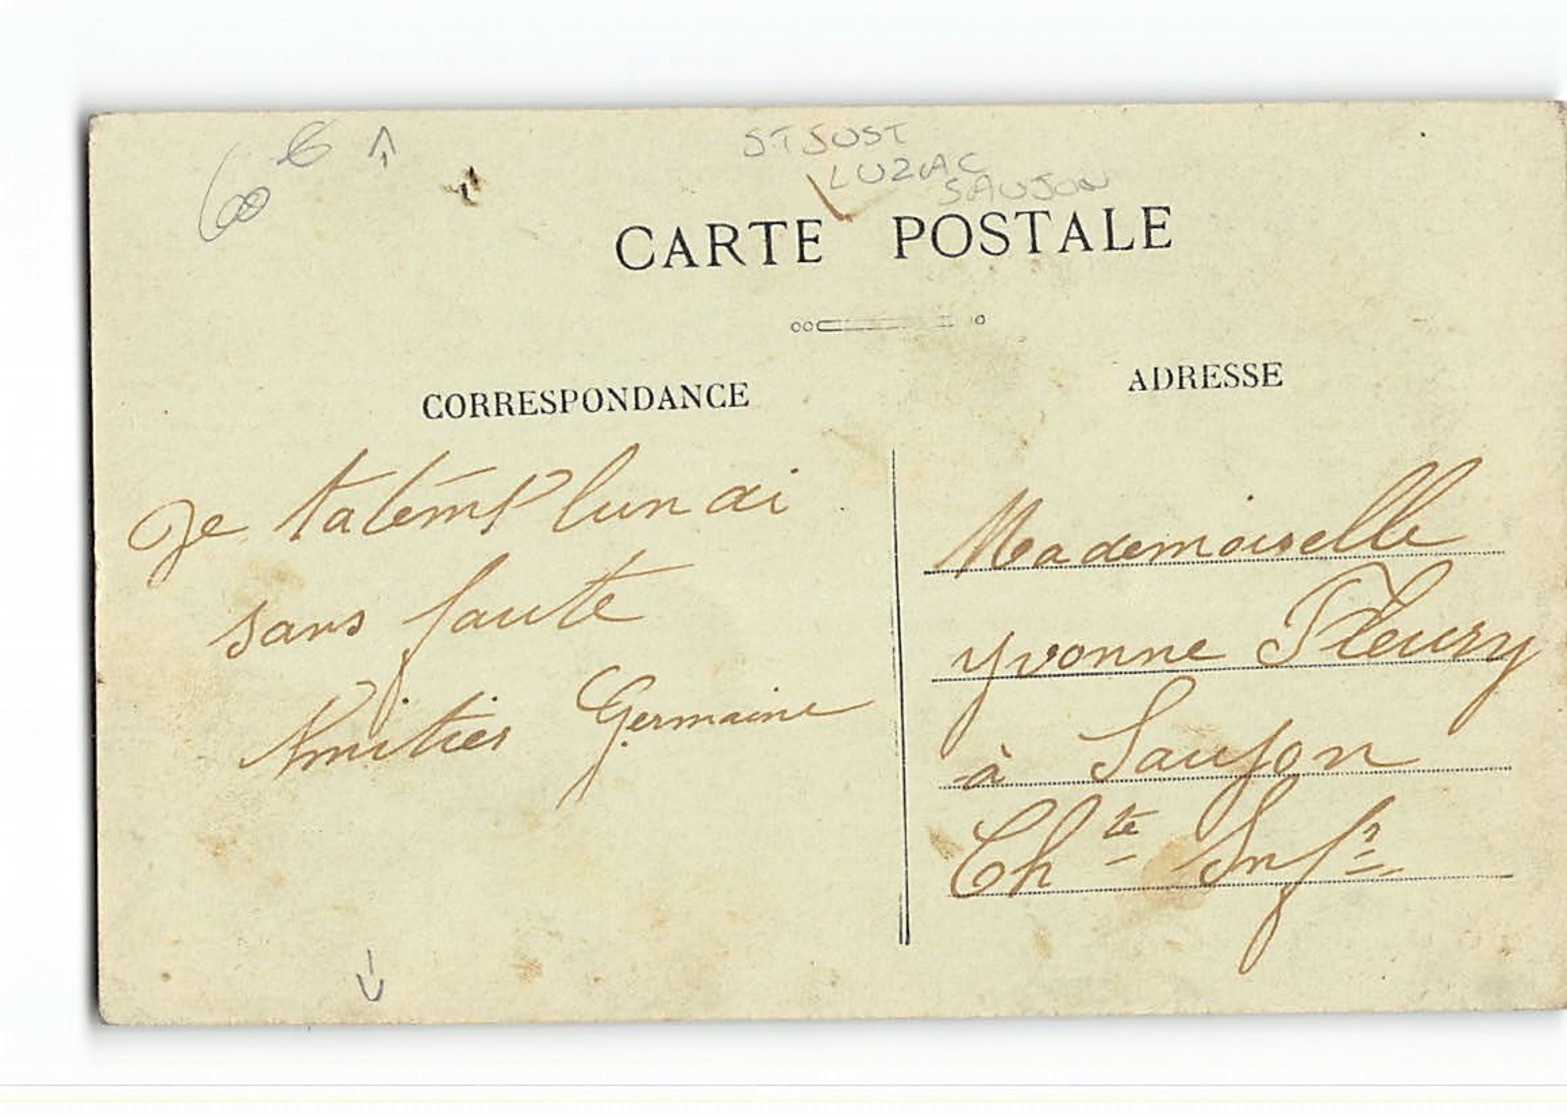 60 €
ST JUST
LUZAC
SAUJON
CARTE POSTALE
CORRESPONDANCE
ADRESSE
Je tatemp lundi
sans faute
Amities Germaine
Mademoiselle
yvonne Fleury
à Saujon
Ch^te Inf^re